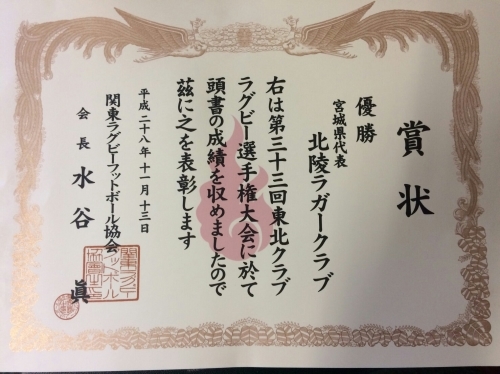 賞状
優勝
宮城県代表
北陵ラガークラブ
右は第三十三回東北クラブ
ラグビー選手権大会に於て
頭書の成績を収めましたので
茲に之を表彰します
平成二十八年十一月十三日
関東ラグビーフットボール協会
会長 水谷 眞